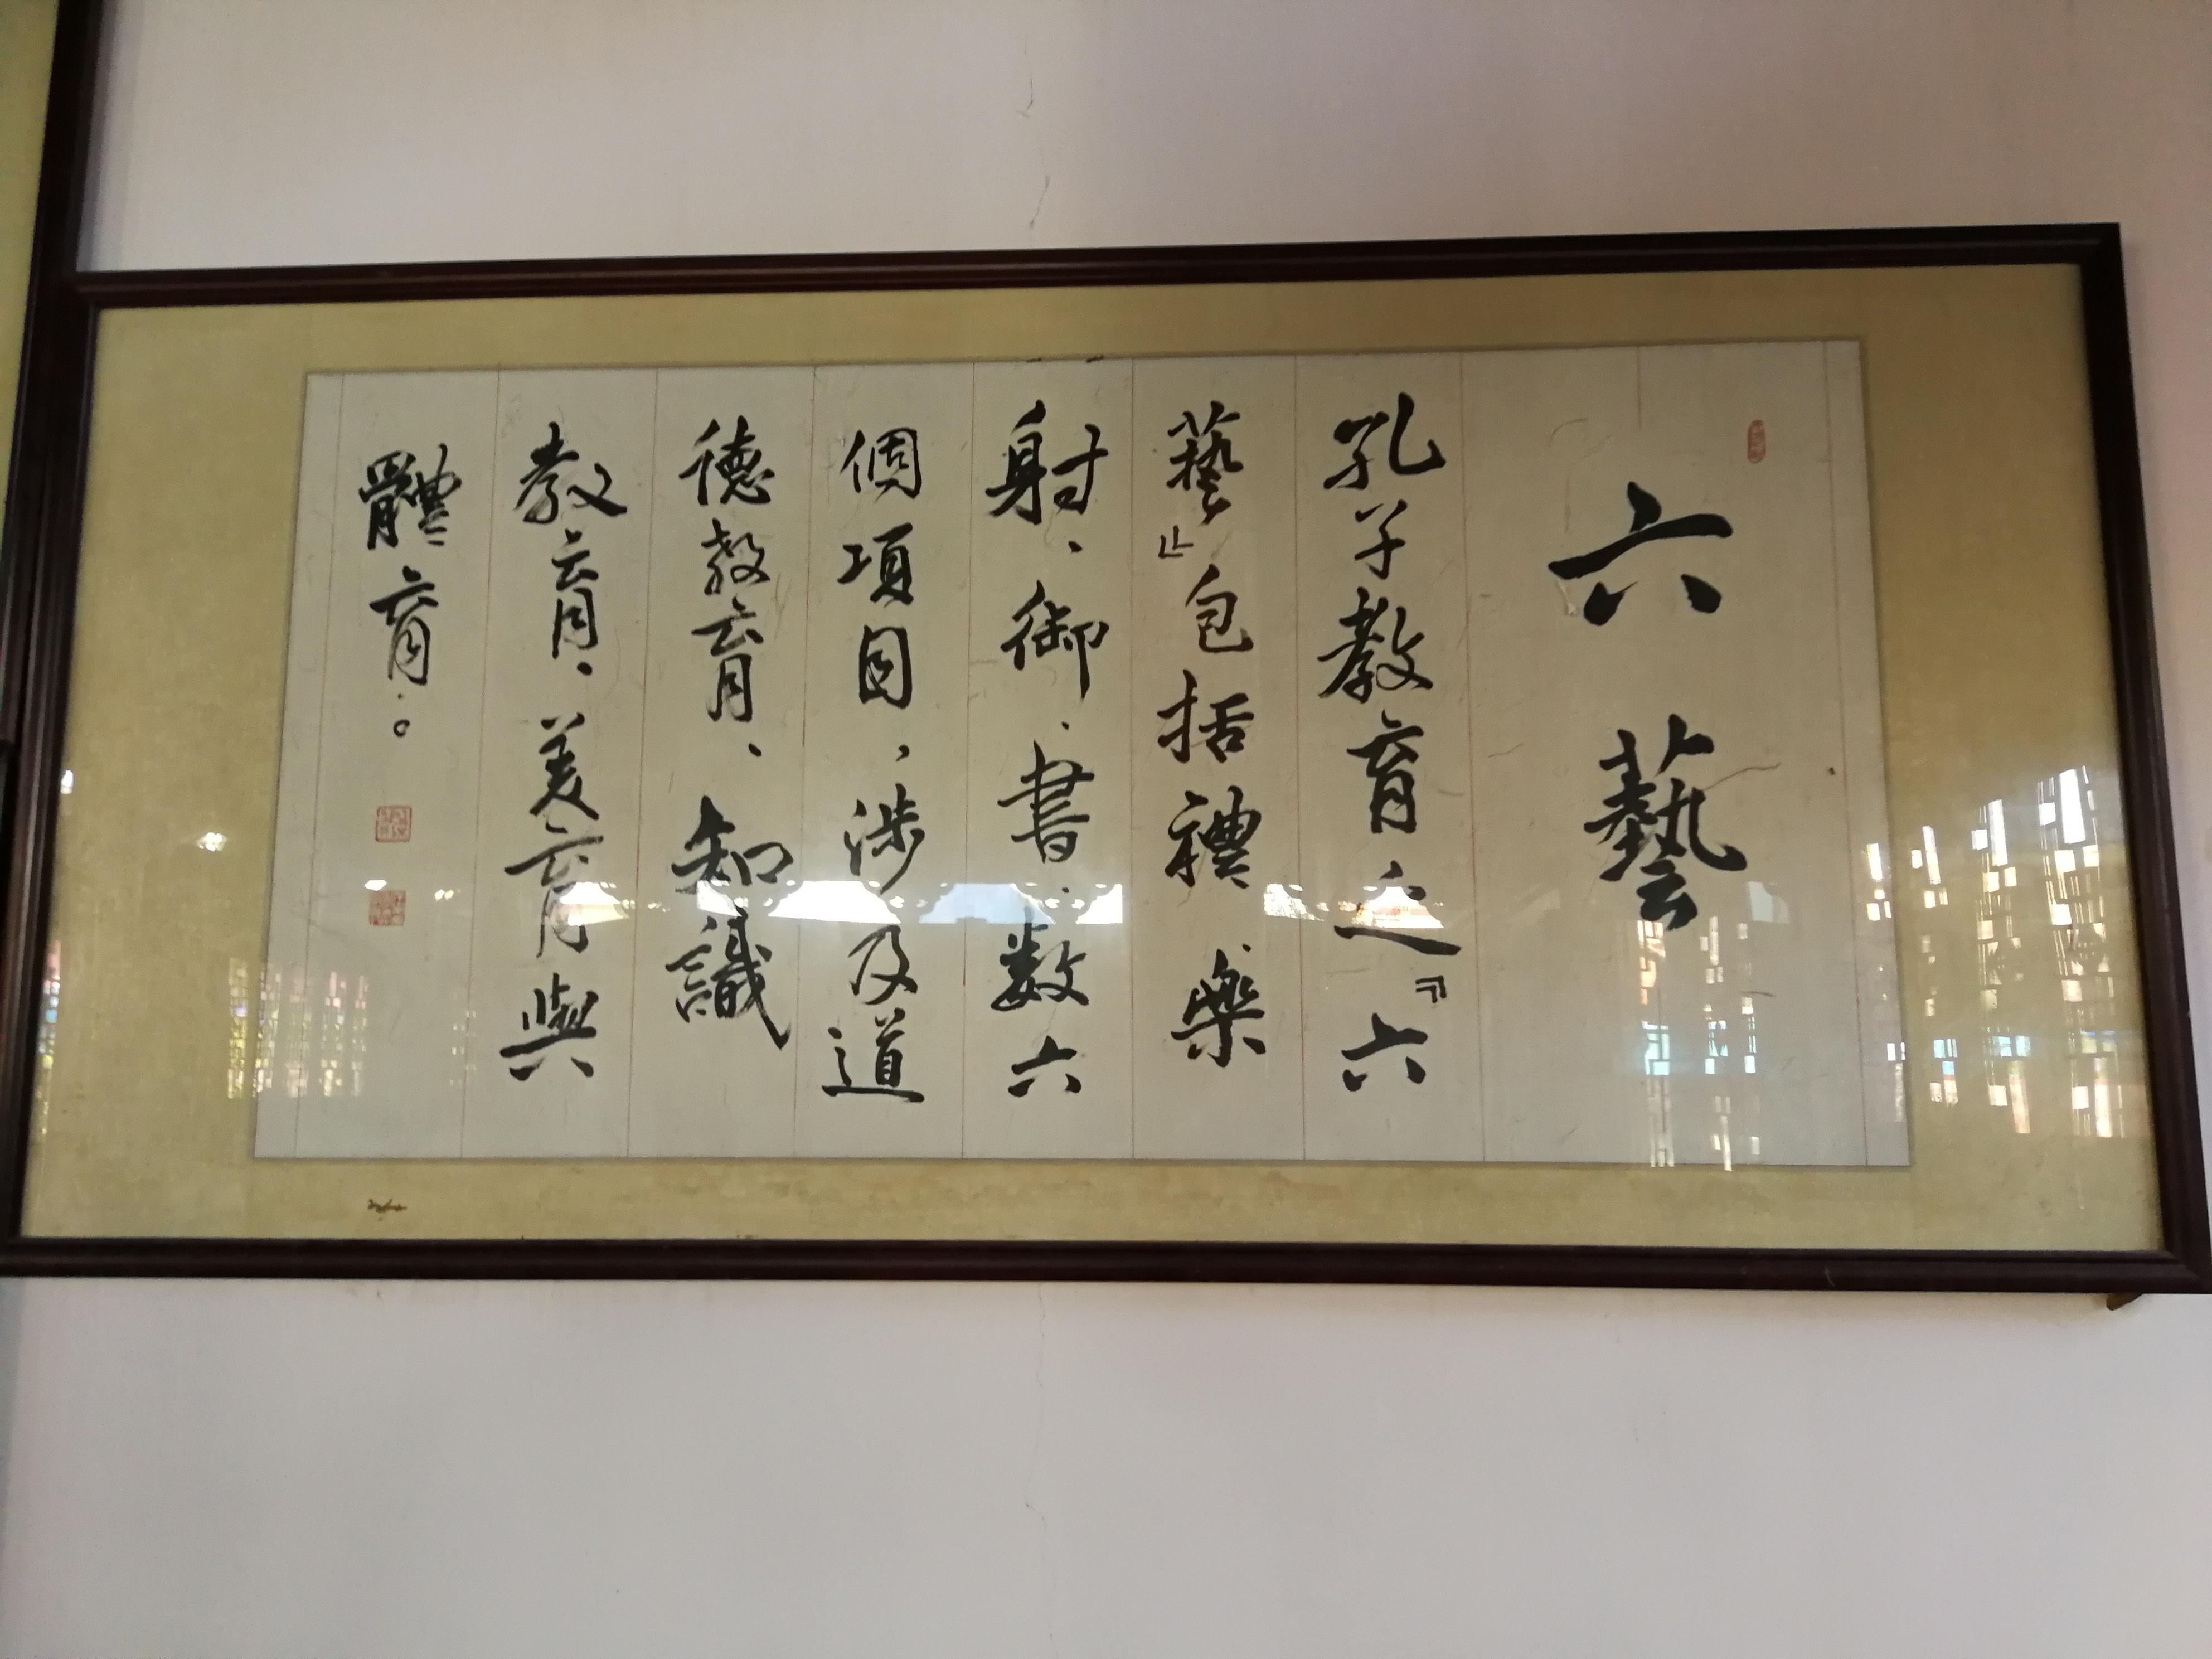 六藝
孔子教育之『六
藝』包括禮樂
射、御、書、数六
個項目，涉及道
德教育、知識
教育、美育與
體育。